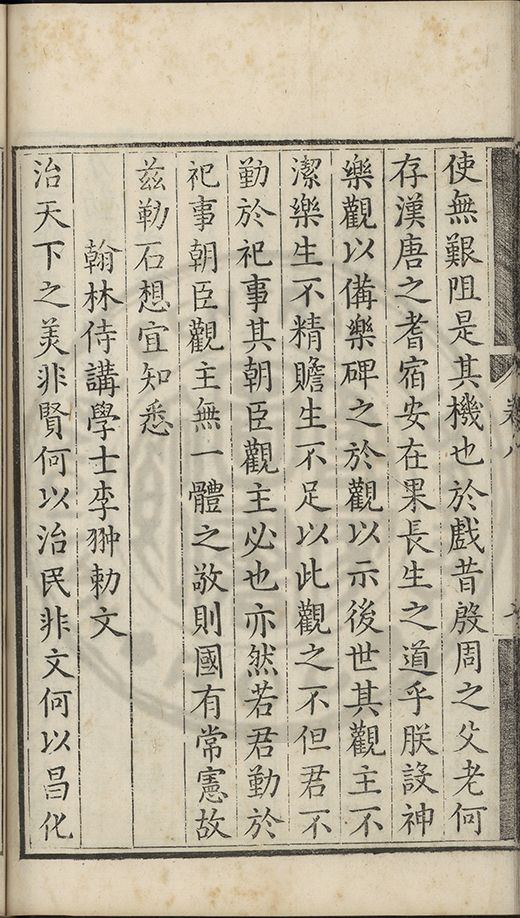 使無艱阻是其機也於戲昔殷周之父老何
存漢唐之耆宿安在果長生之道乎朕設神
樂觀以備樂碑之於觀以示後世其觀主不
潔樂生不精贍生不足以此觀之不但君不
勤於祀事其朝臣觀主必也亦然若君勤於
祀事朝臣觀主無一體之敬則國有常憲故
茲勒石想宜知悉
翰林侍講學士李翀勅文
治天下之美非賢何以治民非文何以昌化
卷八